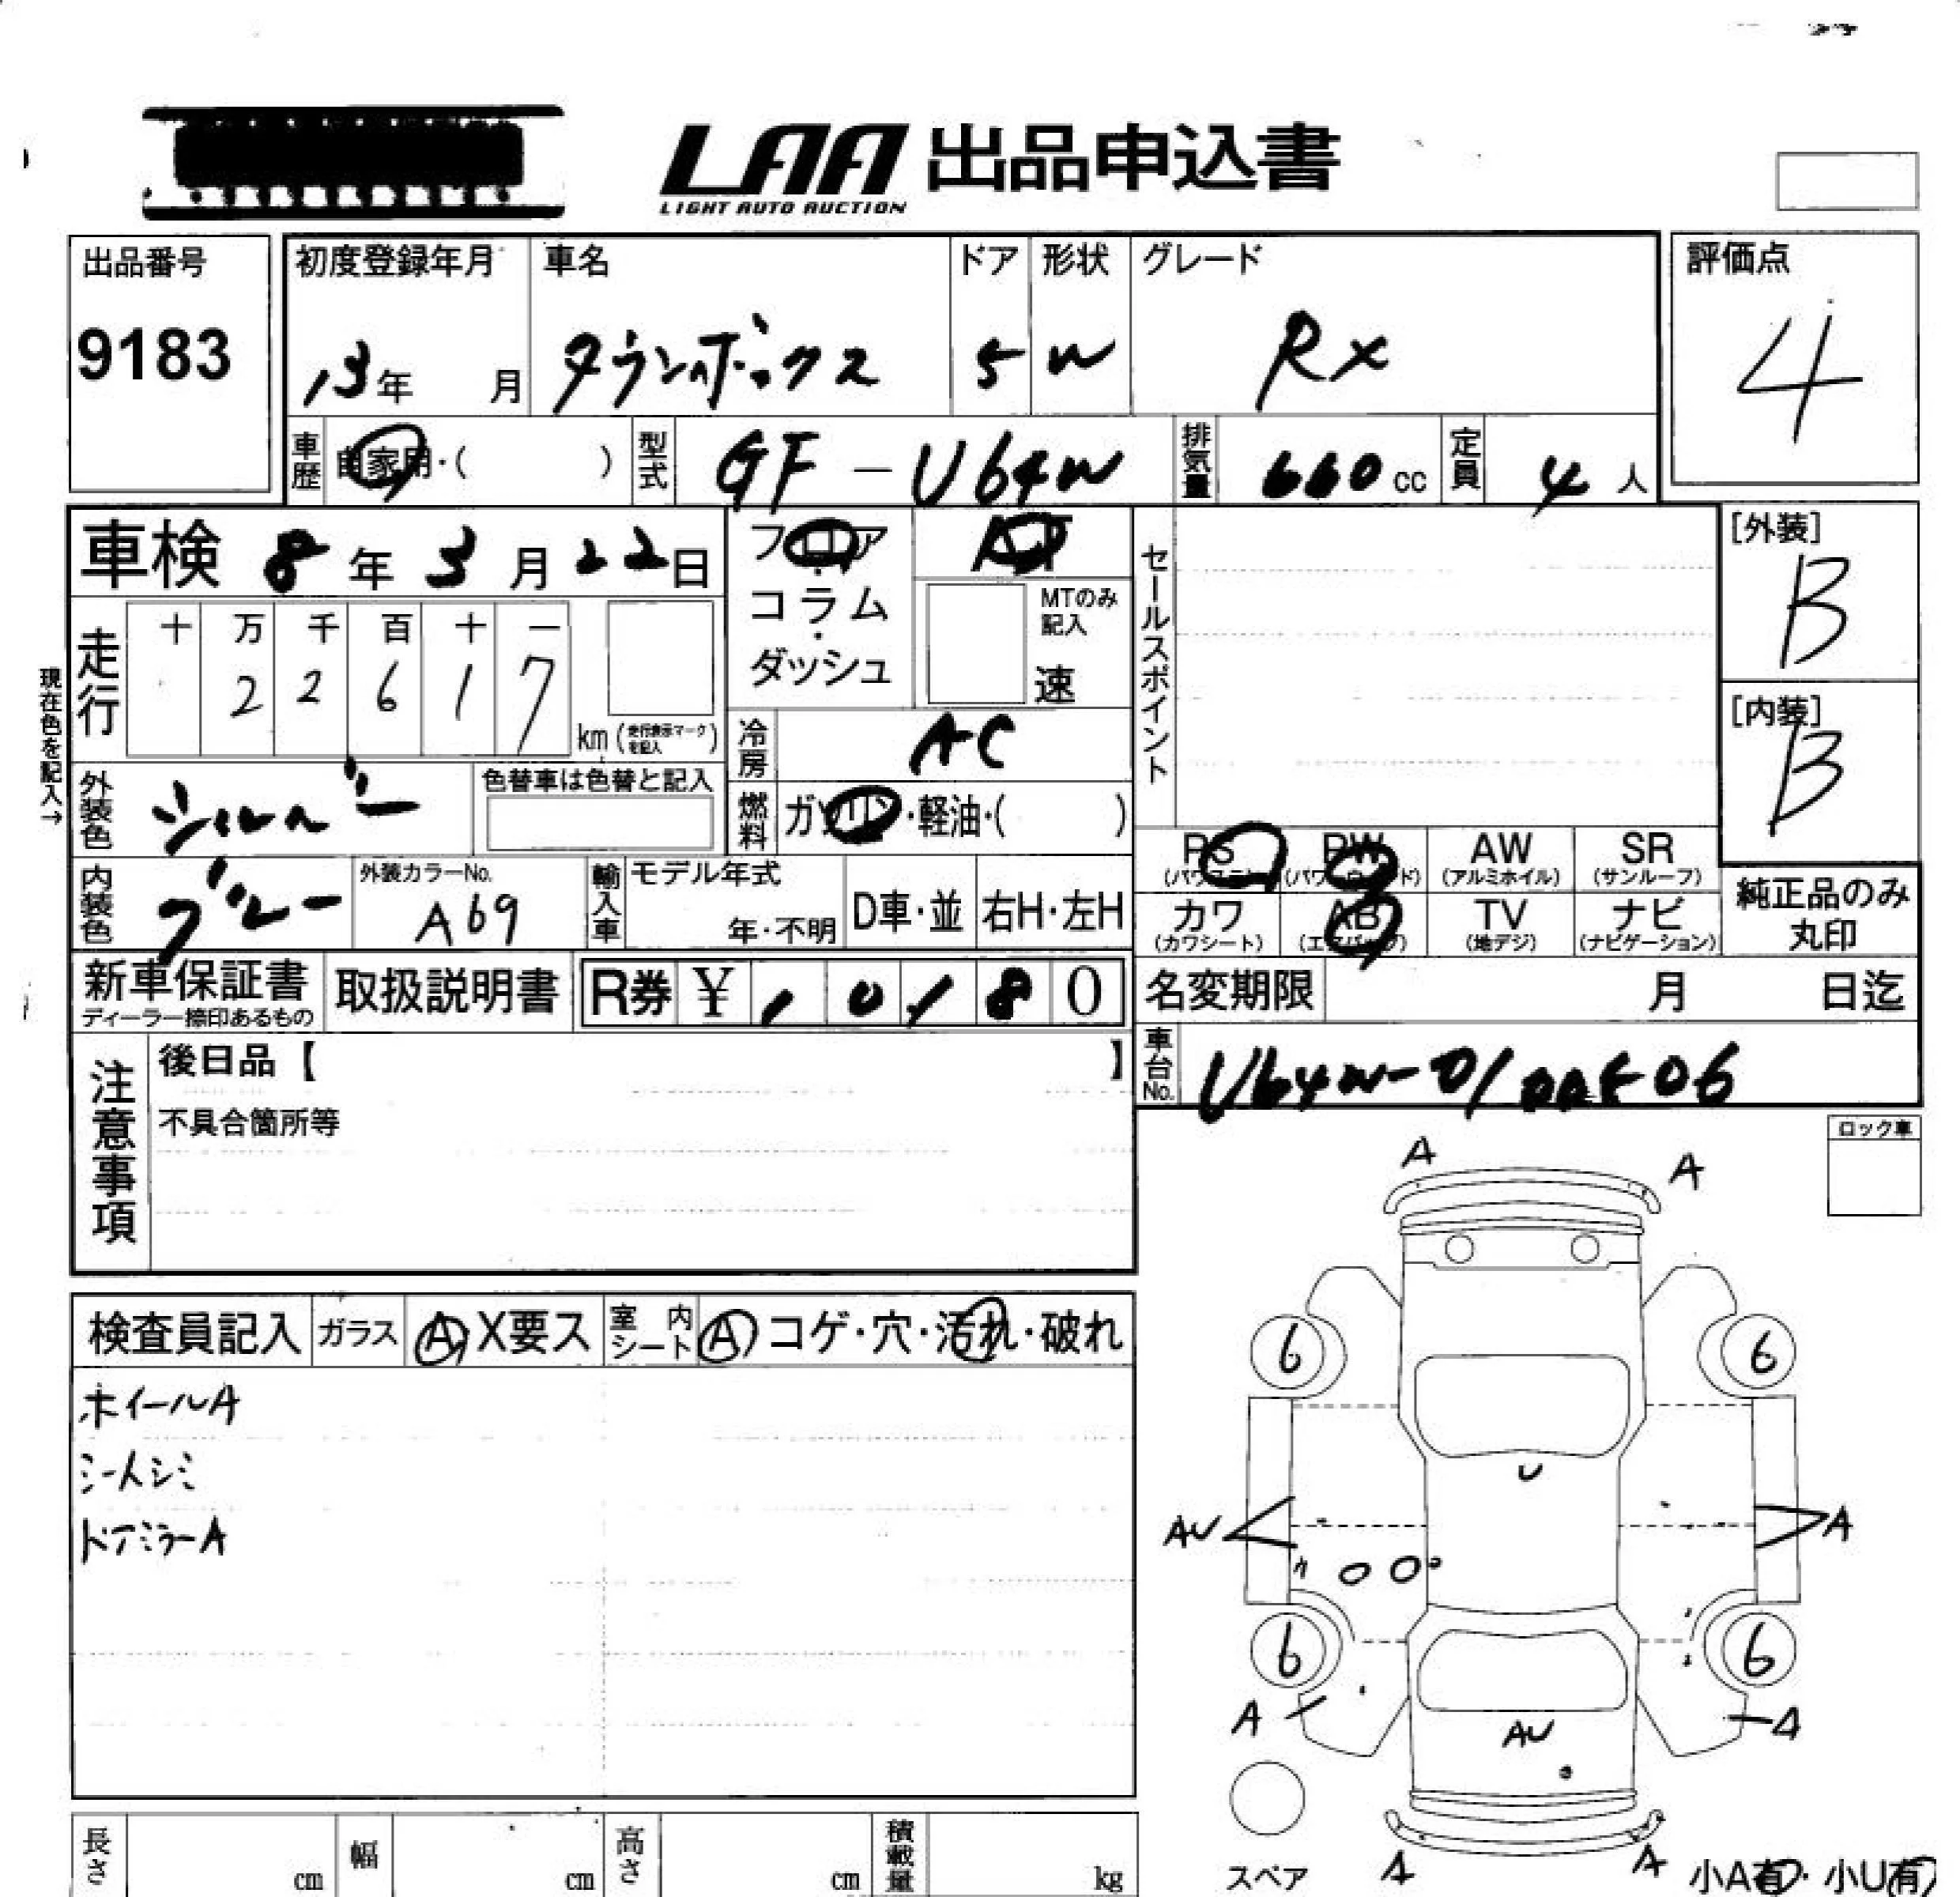 LAA 出品申込書
LIGHT AUTO AUCTION
出品番号
9183
初度登録年月
13年 月
車名
タウンボックス
ドア
5
形状
W
グレード
RX
評価点
4
車歴 自家用・( )
型式 GF-U64W
排気量 660 cc
定員 4 人
車検 8年3月22日
フロア・コラム・ダッシュ
AT
MTのみ記入
速
セールスポイント
[外装]
B
[内装]
B
走行
十 万 千 百 十 一
2 2 6 1 7
km (走行表示マークを記入)
現在色を記入→
冷房 AC
外装色 シルバー
色替車は色替と記入
燃料 ガソリン・軽油・( )
内装色 グレー
外装カラーNo.
A69
輸入車
モデル年式
年・不明
D車・並
右H・左H
PS (パワステ)
PW (パワーウィンド)
AW (アルミホイル)
SR (サンルーフ)
カワ (カワシート)
AB (エアバッグ)
TV (地デジ)
ナビ (ナビゲーション)
純正品のみ丸印
新車保証書
ディーラー捺印あるもの
取扱説明書
R券 ¥ 1 0 1 8 0
名変期限 月 日迄
車台No.
注意事項
後日品【 】
不具合箇所等
ロック車
検査員記入
ガラス A X要ス
室内シート A コゲ・穴・汚れ・破れ
ホイールA
シートシミ
ドアミラーA
A A
6 6
U
AU A
6 6
A A
AU
A A
スペア
小A有・小U有
長さ cm
幅 cm
高さ cm
積載量 kg